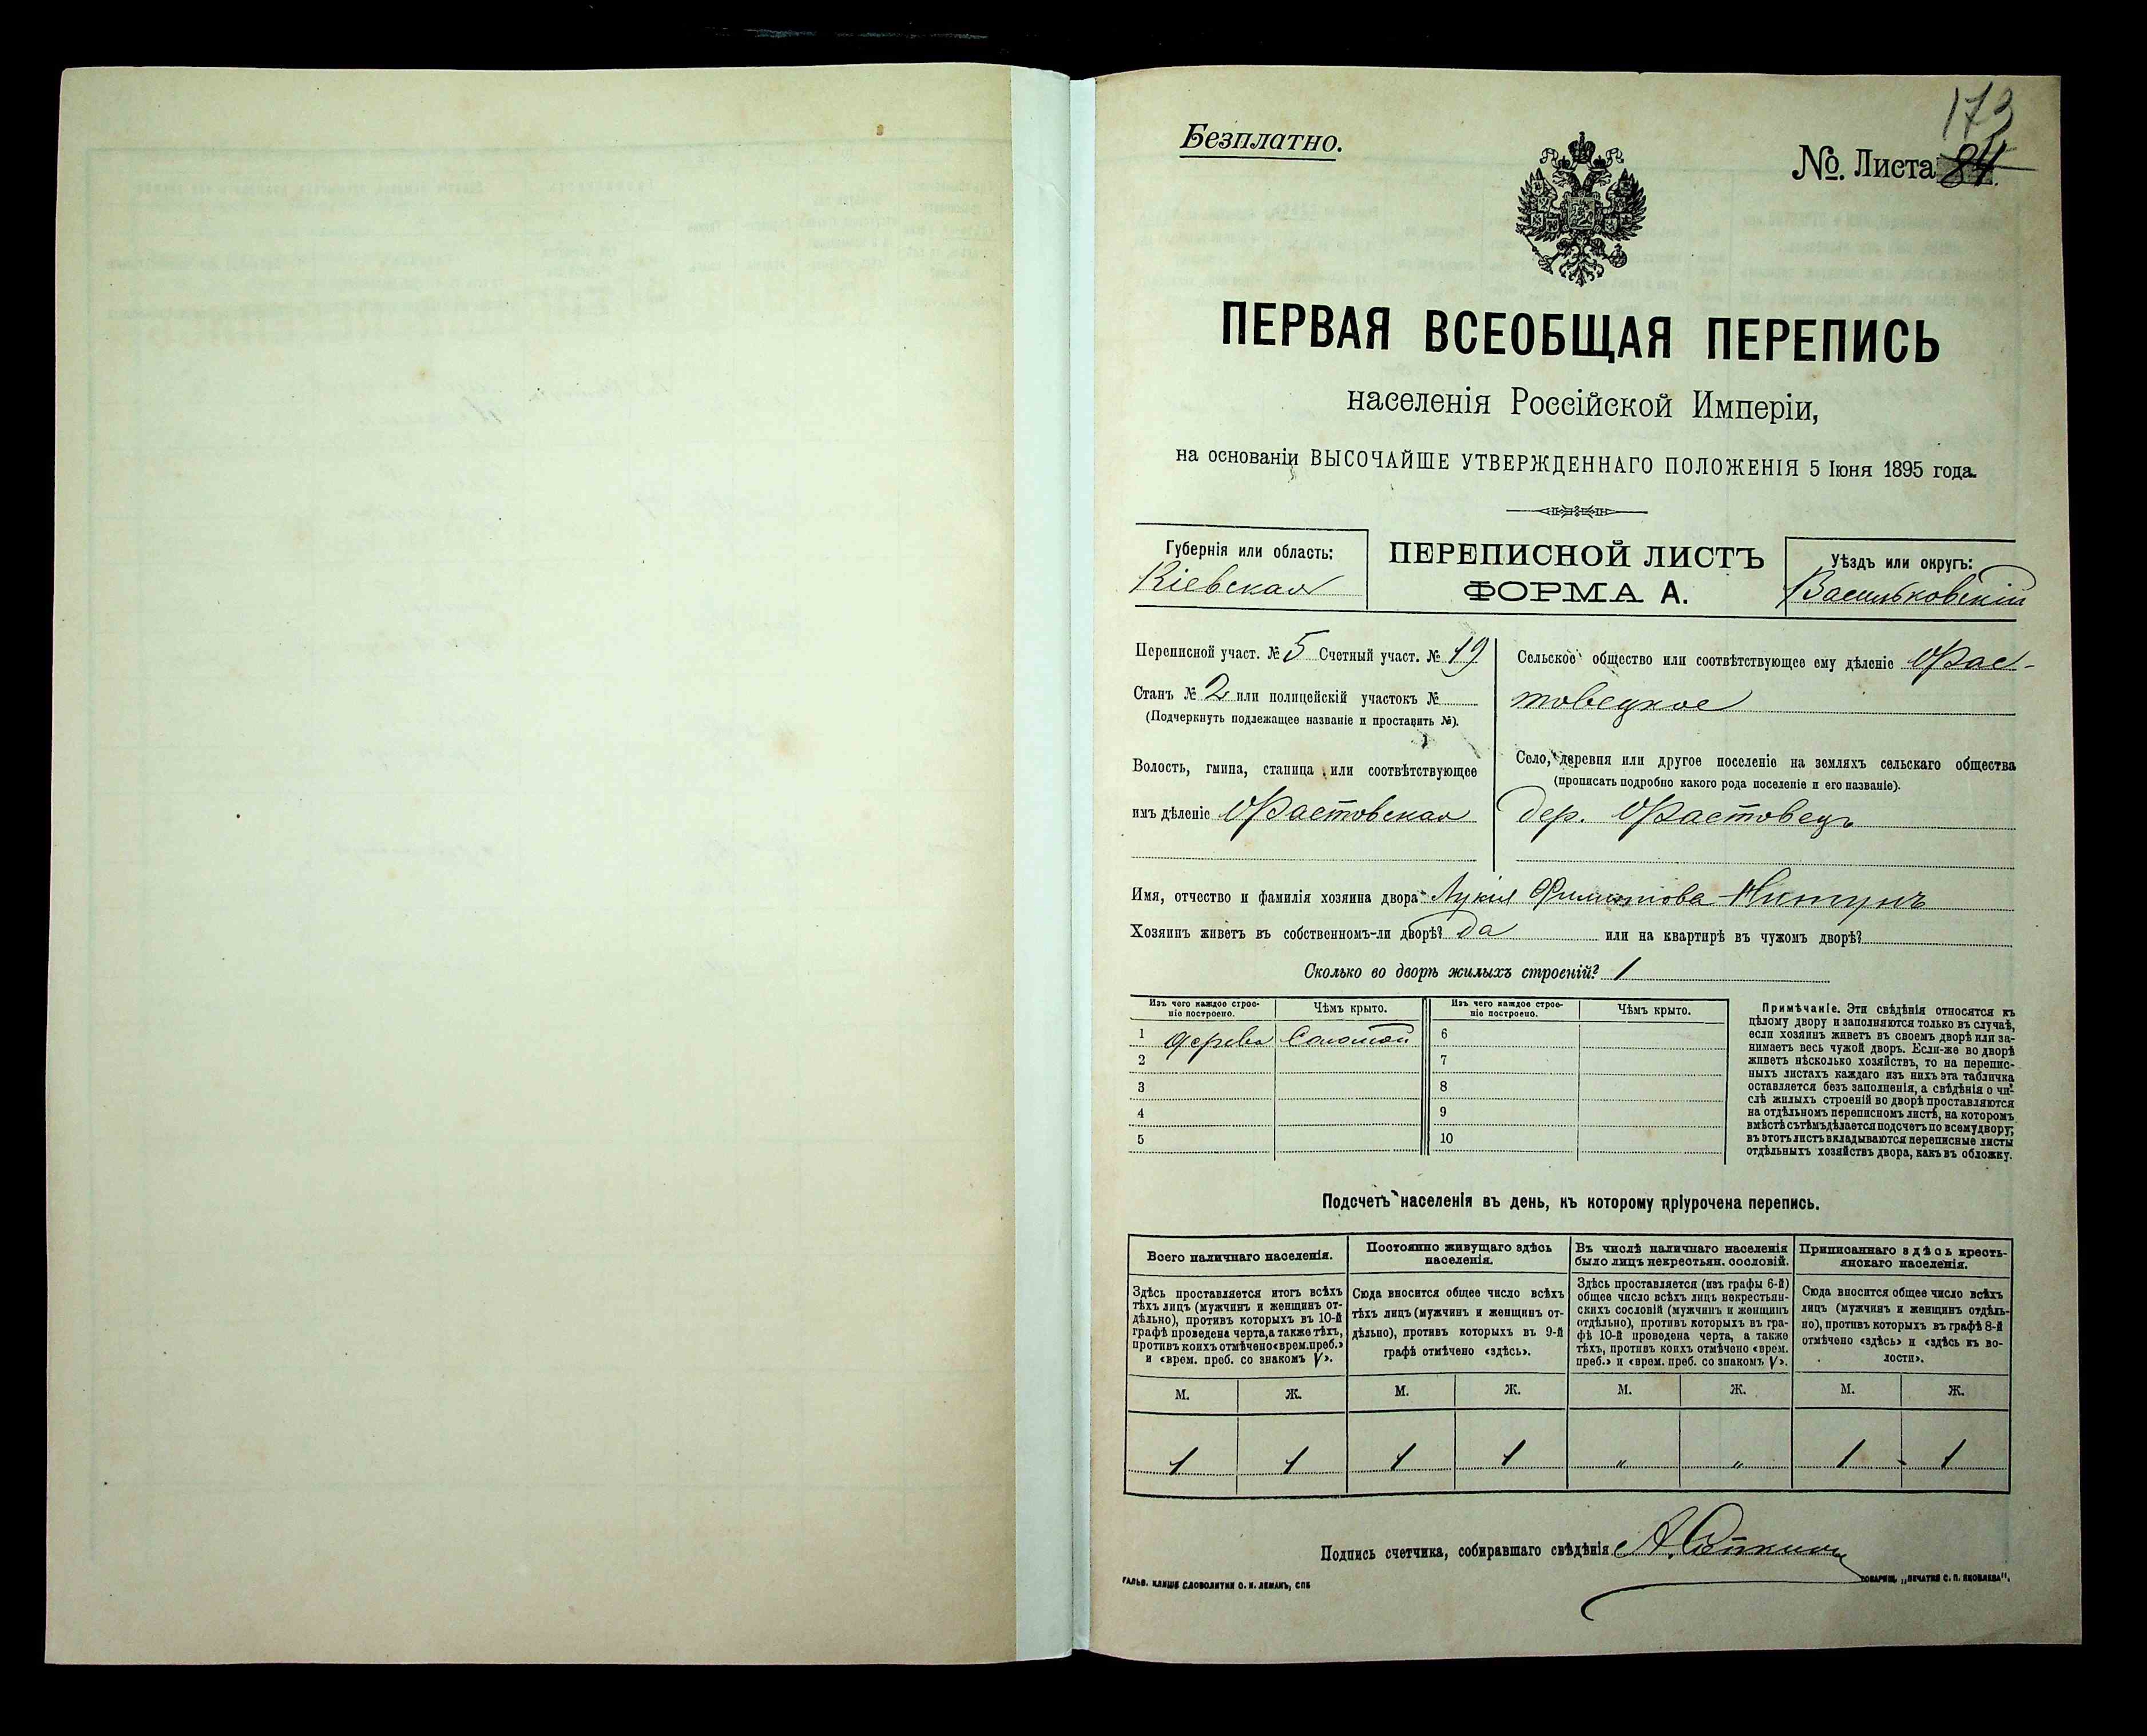 Безплатно.
173
№. Листа 84.
ПЕРВАЯ ВСЕОБЩАЯ ПЕРЕПИСЬ
населенія Россійской Имперіи,
на основаніи ВЫСОЧАЙШЕ УТВЕРЖДЕННАГО ПОЛОЖЕНІЯ 5 Іюня 1895 года.
Губернія или область:
Кіевская
ПЕРЕПИСНОЙ ЛИСТЪ
ФОРМА А.
Уѣздъ или округъ:
Васильковскій
Переписной участ. № 5 Счетный участ. № 19
Станъ № 2 или полицейскій участокъ №
(Подчеркнуть подлежащее названіе и проставить №).
Волость, гмина, станица или соотвѣтствующее
имъ дѣленіе Фастовская
Сельское общество или соотвѣтствующее ему дѣленіе Фас-
товецкое
Село, деревня или другое поселеніе на земляхъ сельскаго общества
(прописать подробно какого рода поселеніе и его названіе).
дер. Фастовецъ
Имя, отчество и фамилія хозяина двора Лукія
Хозяинъ живетъ въ собственномъ-ли дворѣ? Да или на квартирѣ въ чужомъ дворѣ?
Сколько во дворѣ жилыхъ строеній? 1
Изъ чего каждое строе-
ніе построено.
Чѣмъ крыто.
Изъ чего каждое строе-
ніе построено.
Чѣмъ крыто.
1 дерева Соломой 6
2 7
3 8
4 9
5 10
Примѣчаніе. Эти свѣдѣнія относятся къ
цѣлому двору и заполняются только въ случаѣ,
если хозяинъ живетъ въ своемъ дворѣ или за-
нимаетъ весь чужой дворъ. Если-же во дворѣ
живетъ нѣсколько хозяйствъ, то на перепис-
ныхъ листахъ каждаго изъ нихъ эта табличка
оставляется безъ заполненія, а свѣдѣнія о чи-
слѣ жилыхъ строеній во дворѣ проставляются
на отдѣльномъ переписномъ листѣ, на которомъ
вмѣстѣ съ тѣмъ дѣлается подсчетъ по всему двору;
въ этотъ листъ вкладываются переписные листы
отдѣльныхъ хозяйствъ двора, какъ въ обложку.
Подсчетъ населенія въ день, къ которому пріурочена перепись.
Всего наличнаго населенія.
Здѣсь проставляется итогъ всѣхъ
тѣхъ лицъ (мужчинъ и женщинъ от-
дѣльно), противъ которыхъ въ 10-й
графѣ проведена черта, а также тѣхъ,
противъ коихъ отмѣчено «врем. преб.»
и «врем. преб. со знакомъ V».
Постоянно живущаго здѣсь
населенія.
Сюда вносится общее число всѣхъ
тѣхъ лицъ (мужчинъ и женщинъ от-
дѣльно), противъ которыхъ въ 9-й
графѣ отмѣчено «здѣсь».
Въ числѣ наличнаго населенія
было лицъ некрестьян. сословій.
Здѣсь проставляется (изъ графы 6-й)
общее число всѣхъ лицъ некрестьян-
скихъ сословій (мужчинъ и женщинъ
отдѣльно), противъ которыхъ въ гра-
фѣ 10-й проведена черта, а также
тѣхъ, противъ коихъ отмѣчено «врем.
преб.» и «врем. преб. со знакомъ V».
Приписаннаго здѣсь кресть-
янскаго населенія.
Сюда вносится общее число всѣхъ
лицъ (мужчинъ и женщинъ отдѣль-
но), противъ которыхъ въ графѣ 8-й
отмѣчено «здѣсь» и «здѣсь въ во-
лости».
М. Ж. М. Ж. М. Ж. М. Ж.
1 1 1 1 " " 1 1
Подпись счетчика, собиравшаго свѣдѣнія
ГАЛЬВ. КЛИШЕ СЛОВОЛИТНИ О. И. ЛЕМАНЪ, СПБ
ТОВАРИЩ. „ПЕЧАТНЯ С. П. ЯКОВЛЕВА".